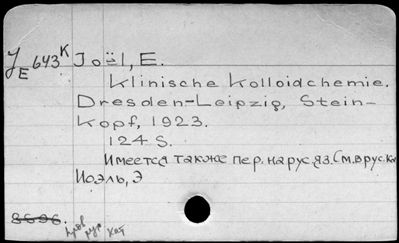 J E 643 K Joël, E.
Klinische Kolloidchemie.
Dresden-Leipzig, Stein-
kopf, 1923.
124 S.
Имеется также пер. на рус.яз. См. в рус. Ка
Иоэль, Э
8696.